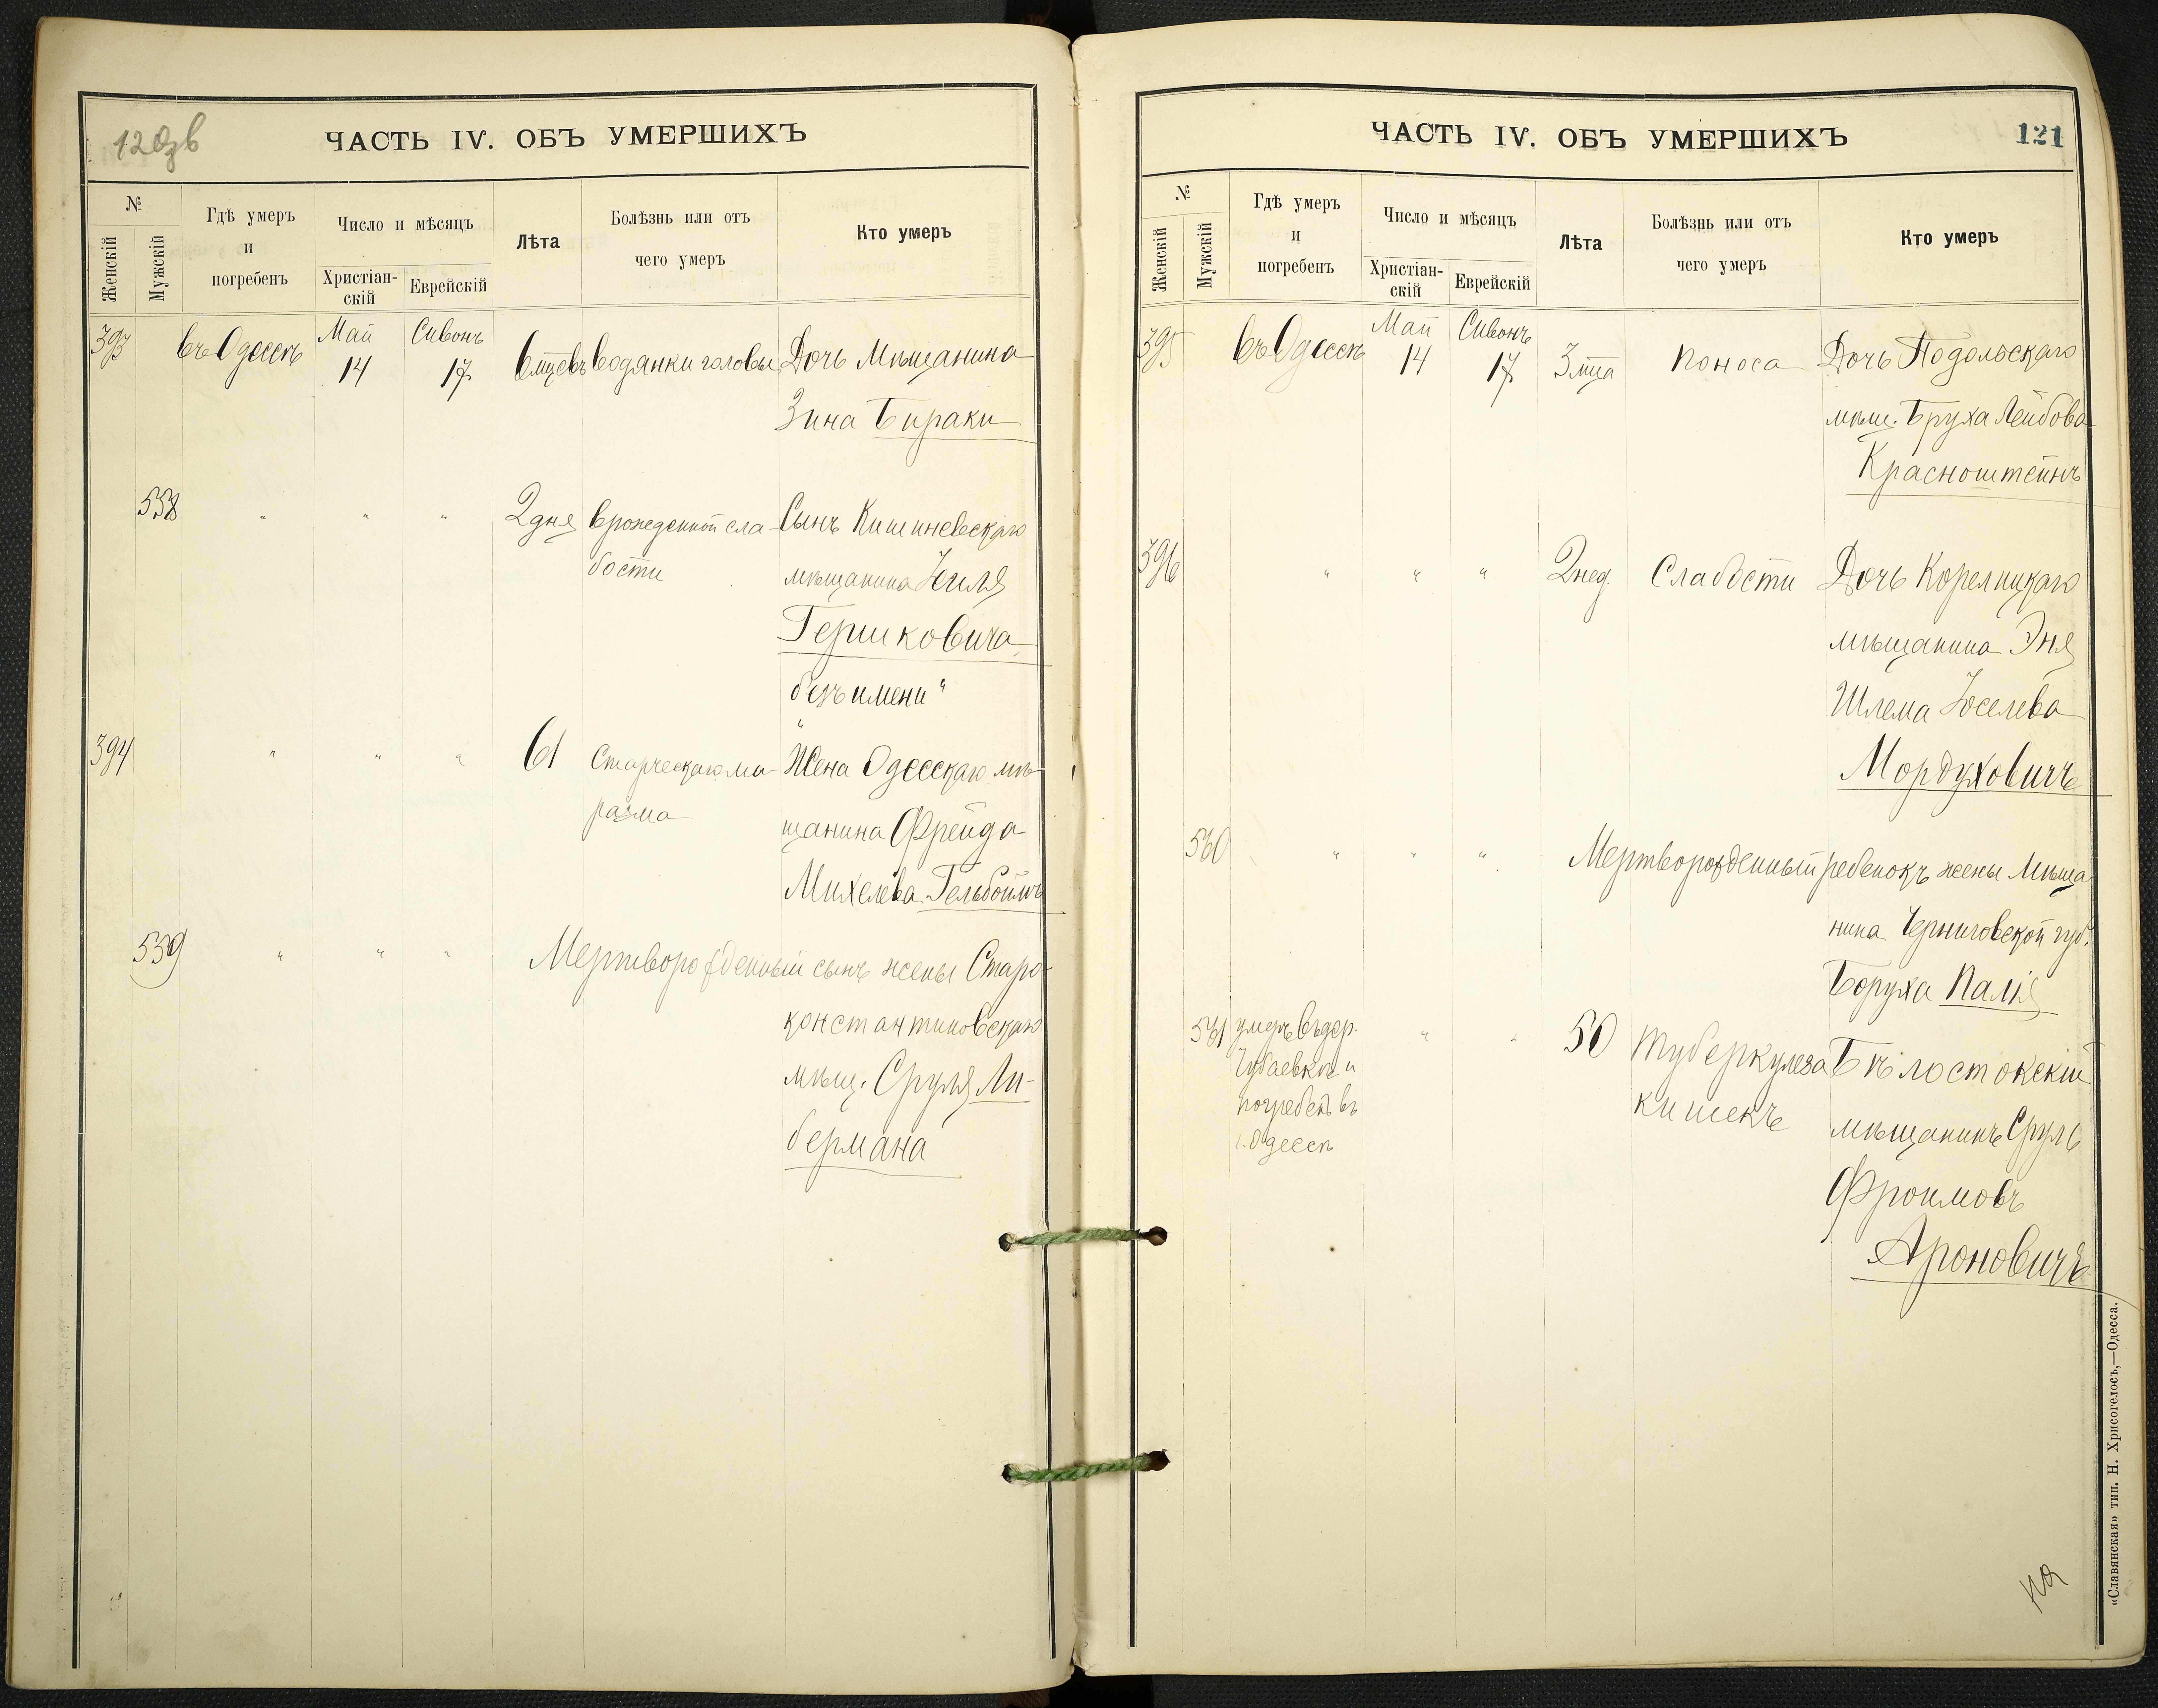 120
ЧАСТЬ IV. ОБЪ УМЕРШИХЪ
№
Женскій
Мужскій
Гдѣ умеръ
и
погребенъ
Число и мѣсяцъ
Христіан-
скій
Еврейскій
Лѣта
Болѣзнь или отъ
чего умеръ
Кто умеръ
393 въ Одессѣ Май 14 Сивонъ 17 6 мцевъ водянки головы Дочь Мѣщанина
Зина Бираки
558 " " " 2 дня врожденной сла- Сынъ Кишиневскаго
бости мѣщанина Хиля
Гершковича
безъ имени "
394 " " " 61 Старческаго ма- Жена Одесскаго мѣ-
разма щанина Фрейда
Михелева Гельбоймъ
559 " " " Мертворожденный сынъ жены Старо-
константиновскаго
мѣщ. Сруля Ли-
бермана
ЧАСТЬ IV. ОБЪ УМЕРШИХЪ
121
№
Женскій
Мужскій
Гдѣ умеръ
и
погребенъ
Число и мѣсяцъ
Христіан-
скій
Еврейскій
Лѣта
Болѣзнь или отъ
чего умеръ
Кто умеръ
395 въ Одессѣ Май 14 Сивонъ 17 3 мца поноса Дочь Подольскаго
мѣщ. Бруха Лейбова
Красноштейнъ
396 " " " 2 нед. Слабости Дочь Корелицкаго
мѣщанина Эня
Шлема Іоселева
Мордуховичъ
560 " " " Мертворожденный ребенокъ жены Мѣща
нина Черниговской губ.
Боруха Палія
561 умеръ въ дер. " " 50 Туберкулеза Бѣлостокскій
Чубаевкѣ и кишекъ мѣщанинъ Сруль
погребенъ въ Фроимовъ
г. Одессѣ Ароновичъ
«Славянская» тип. Н. Хрисогелосъ,—Одесса.